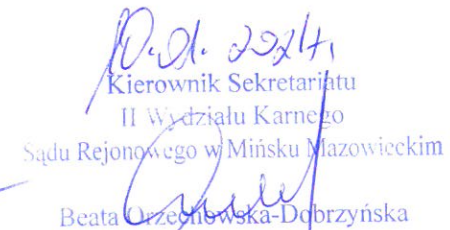 10.01.2024r.
Kierownik Sekretariatu
II Wydziału Karnego
Sądu Rejonowego w Mińsku Mazowieckim
Beata Orzechowska-Dobrzyńska